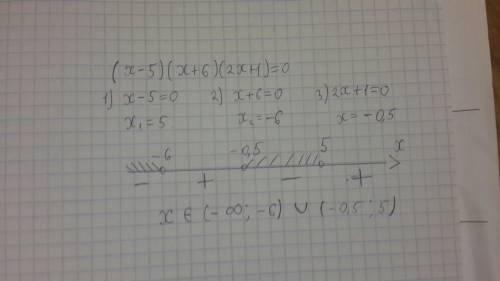 (x-5)(x+6)(2x+1)=0
1) x-5=0 2) x+6=0 3) 2x+1=0
x₁=5 x₂=-6 x=-0,5
-6 -0,5 5 x
- + - +
x ∈ (-∞; -6) ∪ (-0,5; 5)